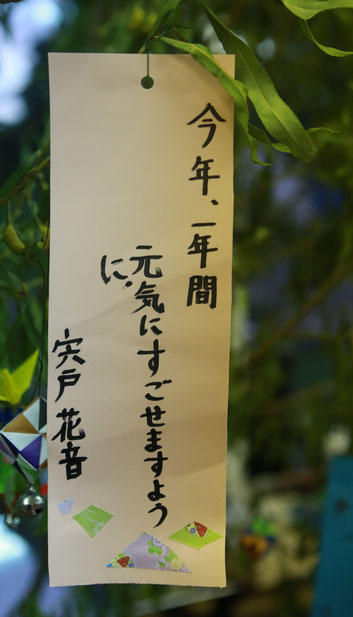 今年、一年間
元気にすごせますよう
に。
宍戸花音